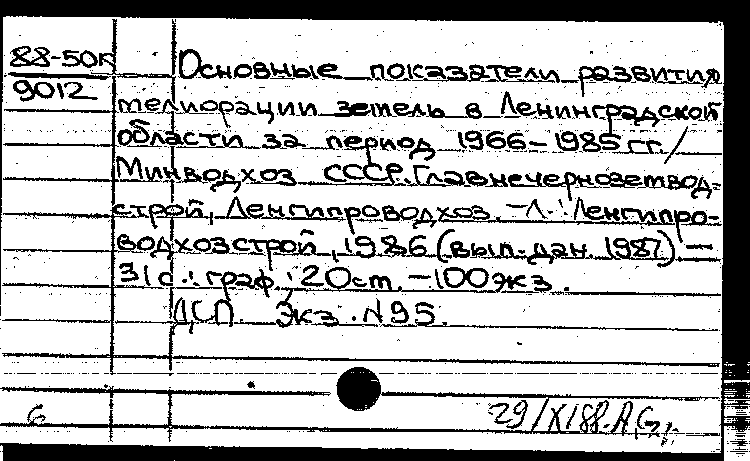 88-50к
9012
Основные показатели развития
мелиорации земель в Ленинградской
области за период 1966-1985 гг. /
Минводхоз СССР. Главнечерноземвод-
строй, Ленгипроводхоз. - Л.: Ленгипро-
водхозстрой, 1986 (вып. дан. 1987). -
31 с.: граф.; 20 см. - 100 экз.
ДСП. Экз. N 95.
6
29/XI 88.